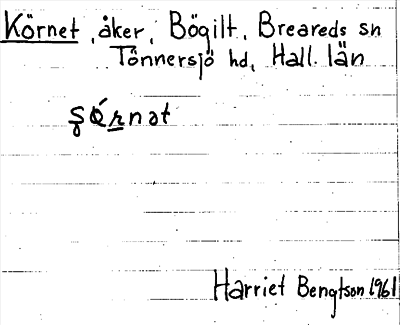 Körnet, åker, Bögilt, Breareds sn
Tönnersjö hd, Hall. län
Harriet Bengtson 1961